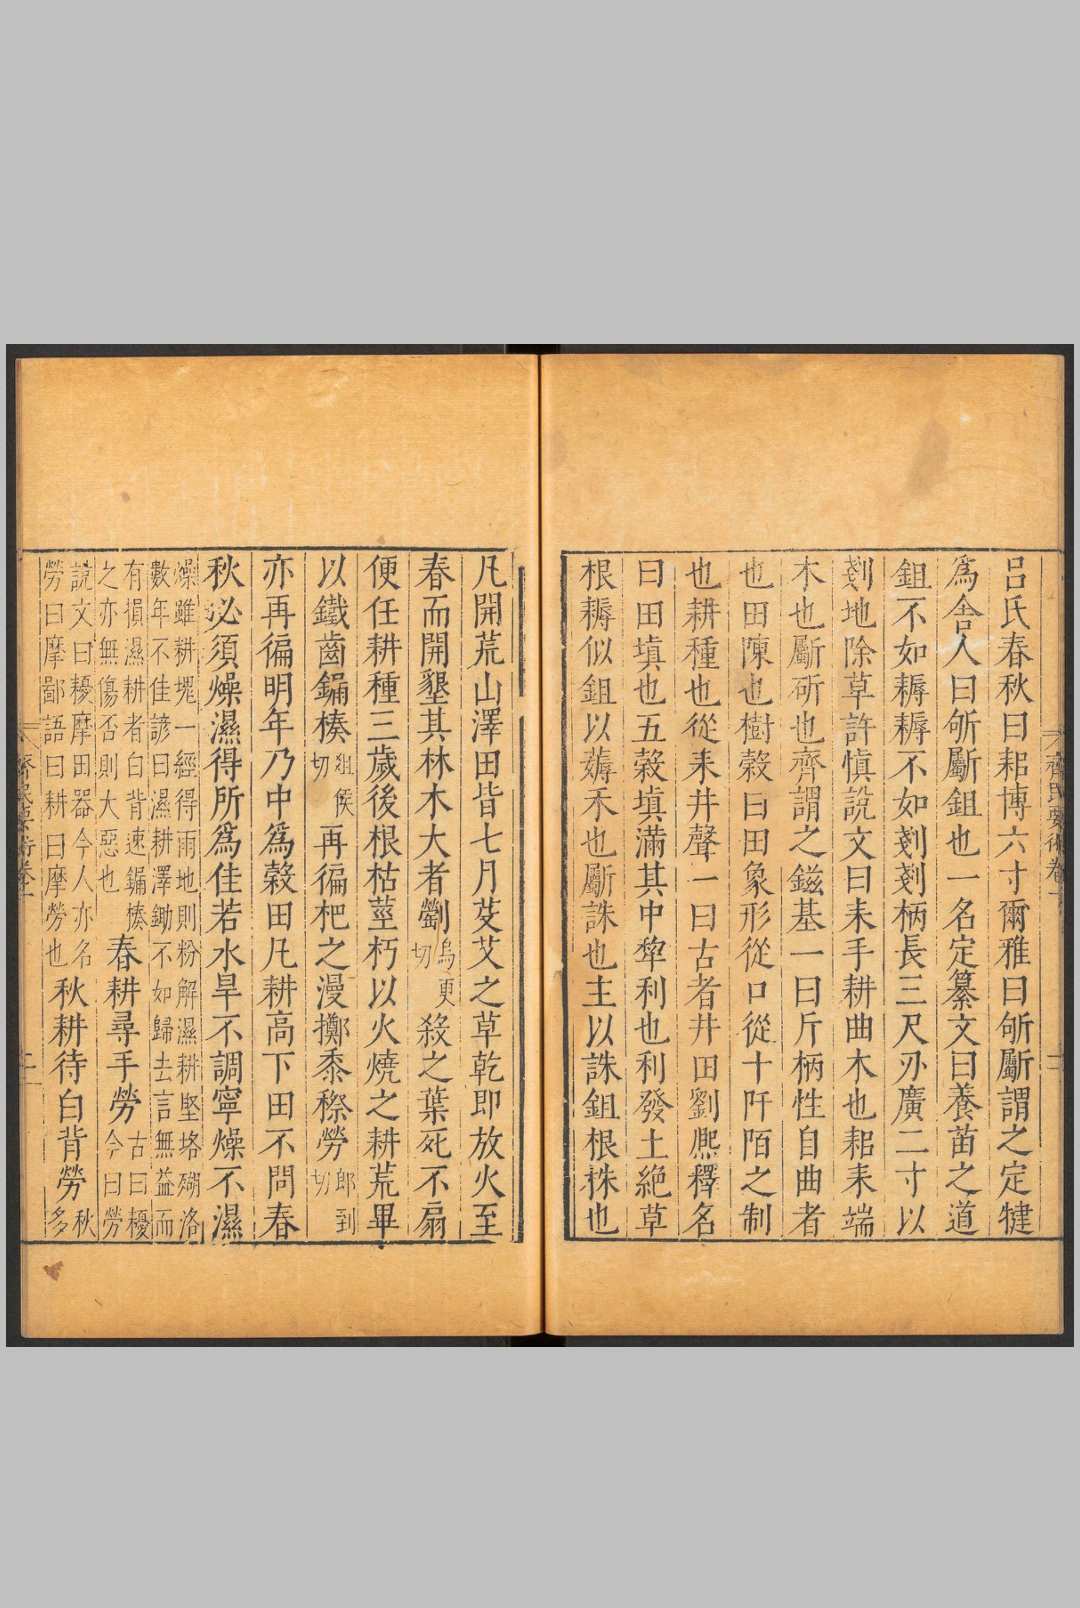 齊民要術卷一
呂氏春秋曰耜博六寸爾雅曰斪斸謂之定犍
爲舍人曰斪斸鉏也一名定纂文曰養苗之道
鉏不如耨耨不如剗剗柄長三尺刃廣二寸以
剗地除草許慎說文曰耒手耕曲木也耜耒端
木也斸斫也齊謂之鎡基一曰斤柄性自曲者
也田陳也樹榖曰田象形從口從十阡陌之制
也耕種也從耒井聲一曰古者井田劉熈釋名
曰田填也五穀填滿其中犂利也利發土絶草
根耨似鉏以薅禾也斸誅也主以誅鉏根株也
凡開荒山澤田皆七月芟艾之草乾即放火至
春而開墾其林木大者劉烏更切殺之葉死不扇
便任耕種三歲後根枯莖朽以火燒之耕荒畢
以鐵齒𨫒楱俎侯切再徧杷之漫擲黍穄勞郎到切
亦再徧明年乃中爲榖田凡耕高下田不問春
秋必須燥濕得所爲佳若水旱不調寧燥不濕
燥雖耕塊一經得雨地則粉解濕耕堅垎䎫洛
數年不佳諺曰濕耕澤鋤不如歸去言無益而
有損濕耕者白背速𨫒楱
之亦無傷否則大惡也
春耕尋手勞
古曰耰
今曰勞
說文曰耰摩田器今人亦名
勞曰摩鄙語曰耕曰摩勞也
秋耕待白背勞
秋
多
齊民要術卷一